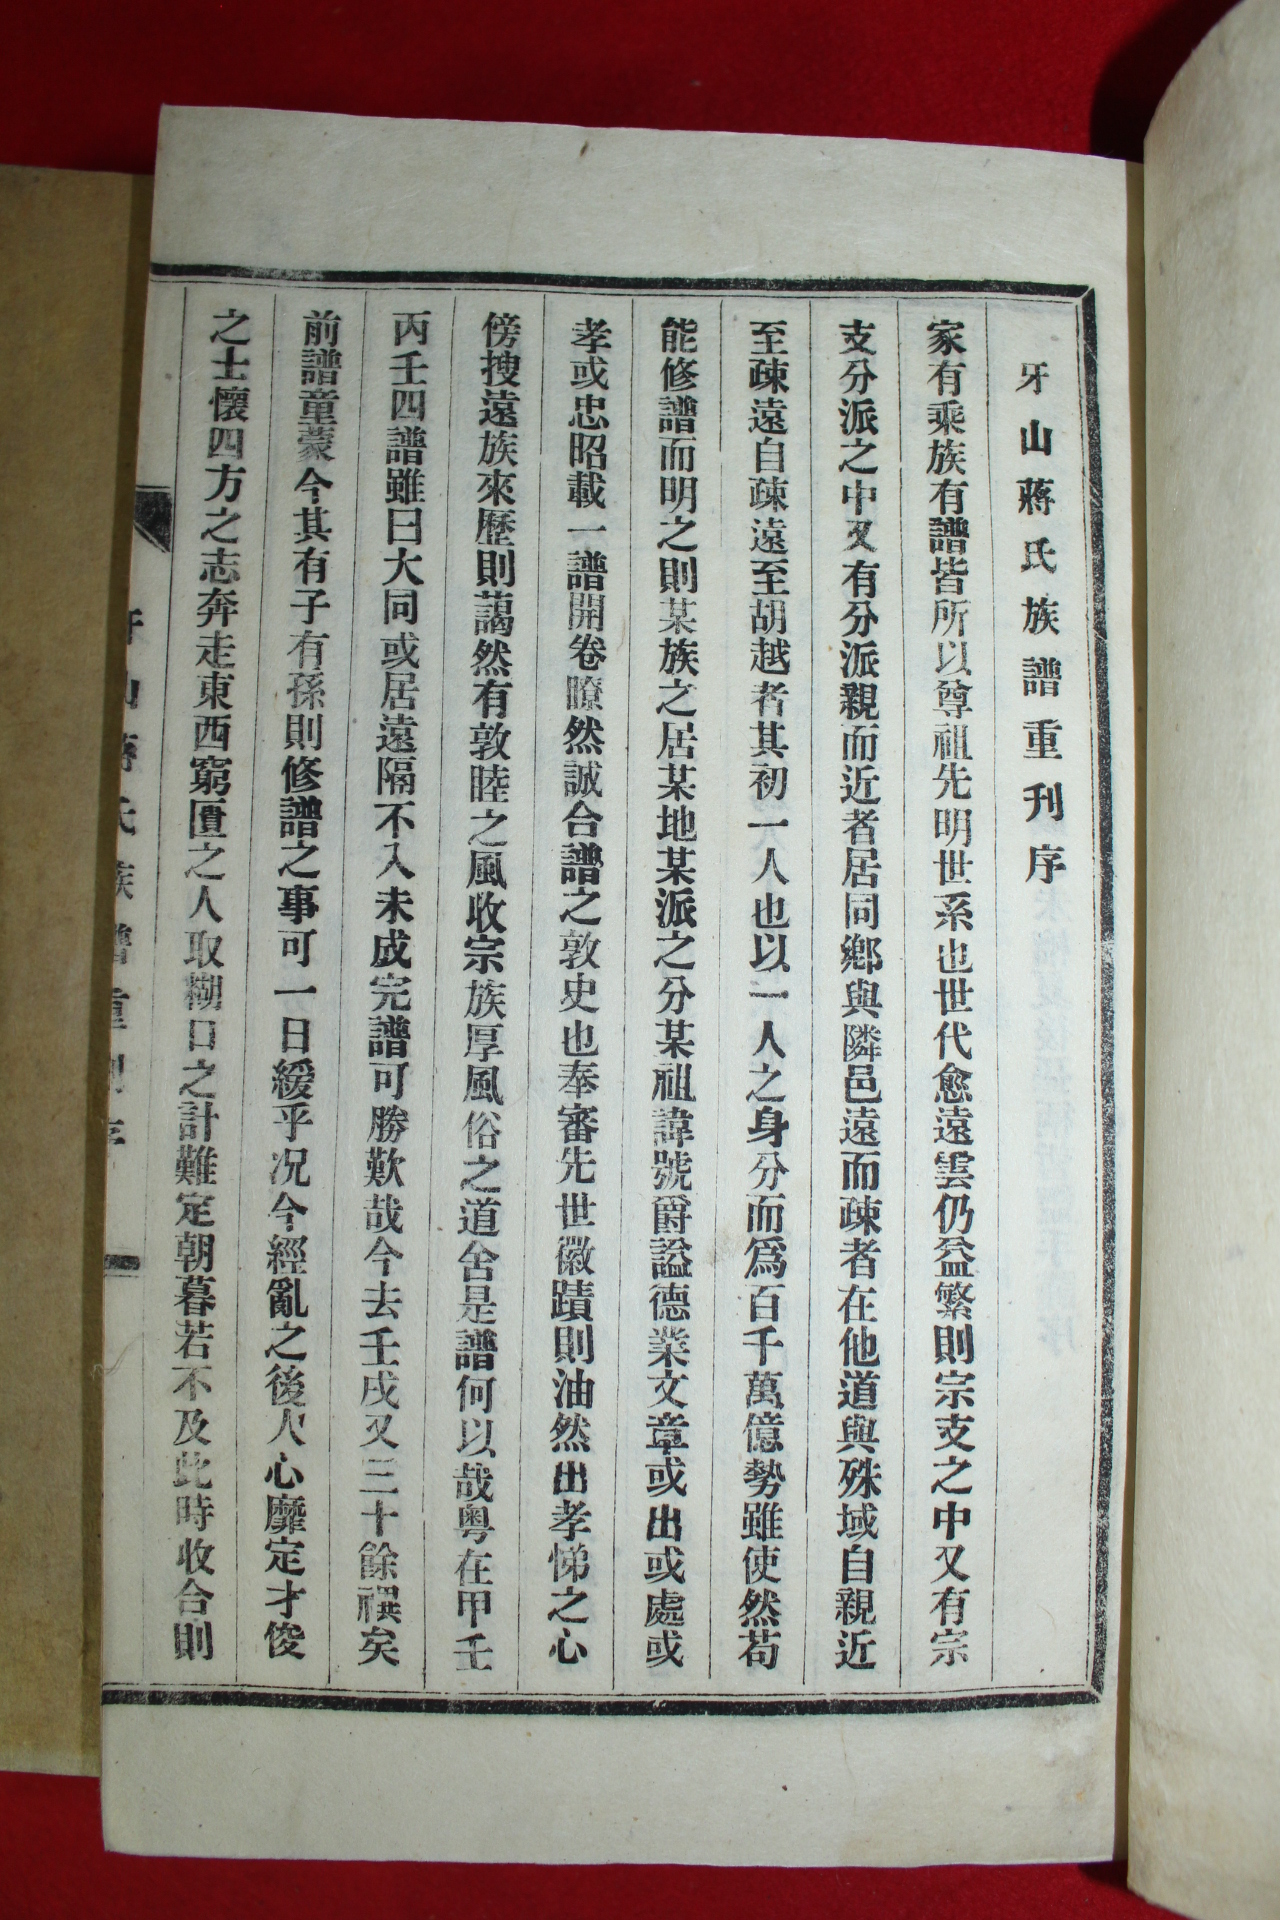 牙山蔣氏族譜重刊序
家有乘族有譜皆所以尊祖先明世系也世代愈遠雲仍益繁則宗支之中又有宗
支分派之中又有分派親而近者居同鄉與隣邑遠而疎者在他道與殊域自親近
至疎遠自疎遠至胡越者其初一人也以一人之身分而爲百千萬億勢雖使然苟
能修譜而明之則某族之居某地某派之分某祖諱號爵諡德業文章或出或處或
孝或忠昭載一譜開卷瞭然誠合譜之敦史也奉審先世徽蹟則油然出孝悌之心
傍搜遠族來歷則藹然有敦睦之風收宗族厚風俗之道舍是譜何以哉粤在甲壬
丙壬四譜雖曰大同或居遠隔不入未成完譜可勝歎哉今去壬戌又三十餘禩矣
前譜童蒙今其有子有孫則修譜之事可一日緩乎况今經亂之後人心靡定才俊
之士懷四方之志奔走東西窮匱之人取糊口之計難定朝暮若不及此時收合則
牙山蔣氏族譜重刊序